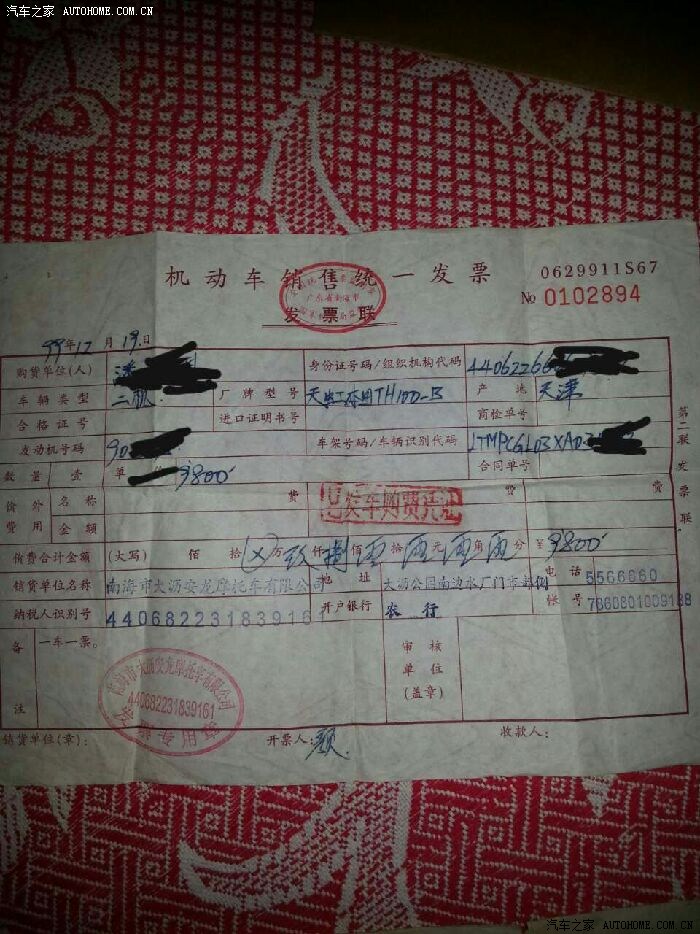 汽车之家 AUTOHOME.COM.CN
机动车销售统一发票
发票联
0629911S67
№ 0102894
99年12月19日
购货单位(人) 身份证号码/组织机构代码 44062266
车辆类型 二轮 厂牌型号 TH100-B 产地 天津
合格证号 进口证明书号 商检单号
发动机号码 90 车架号码/车辆识别代码 LTMPCGL03XA0 合同单号
数量 壹 单 9800
价外费用 名称 费 费 费
金额
已发车购费凭记
价费合计金额 (大写) 佰 拾 ⊗ 万 玖 仟 捌 佰 拾 元 角 分 ¥ 9800
销货单位名称 南海市大沥安龙摩托车有限公司 地址 大沥公园南边水厂门市 电话 5566660
纳税人识别号 440682231839161 开户银行 农行 帐号 7660801009188
备注 一车一票。 审核单位(盖章)
第二联 发票联
南海市大沥安龙摩托车有限公司
440682231839161
发票专用章
销货单位(章): 开票人: 颜 收款人:
汽车之家 AUTOHOME.COM.CN